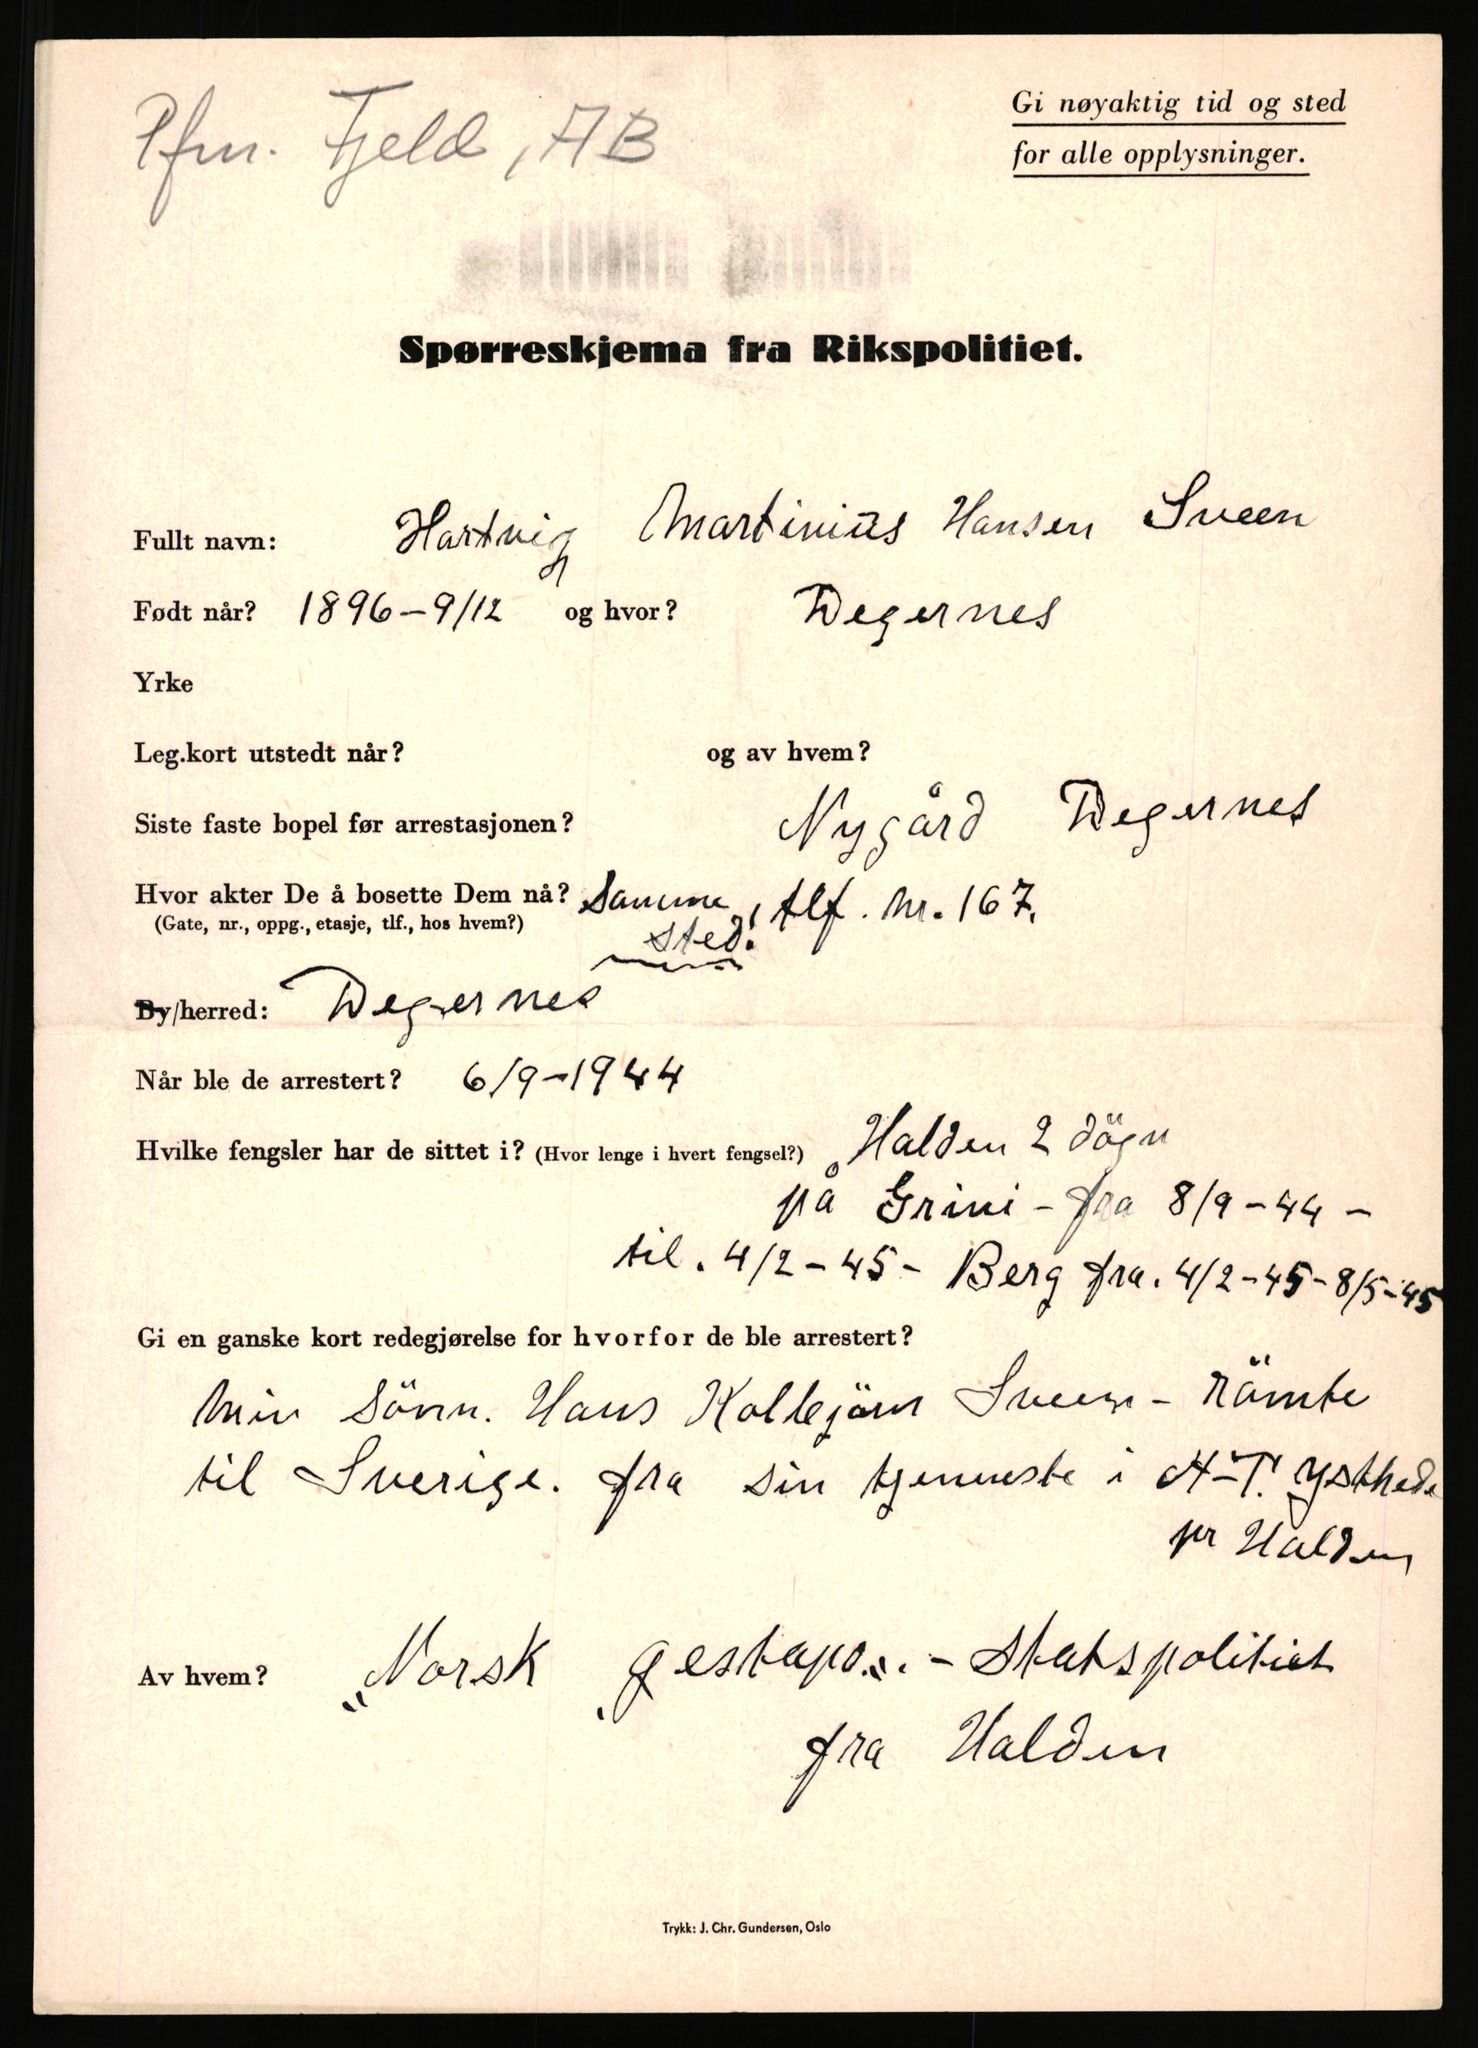 Pfm. Fjeld, AB
Gi nøyaktig tid og sted
for alle opplysninger.
Spørreskjema fra Rikspolitiet.
Fullt navn: Hartvig Martinius Hansen Sveen
Født når? 1896-9/12 og hvor? Degernes
Yrke
Leg.kort utstedt når? og av hvem?
Siste faste bopel før arrestasjonen? Nygård Degernes
Hvor akter De å bosette Dem nå? Samme sted, tlf. nr. 167.
(Gate, nr., oppg., etasje, tlf., hos hvem?)
By/herred: Degernes
Når ble de arrestert? 6/9-1944
Hvilke fengsler har de sittet i? (Hvor lenge i hvert fengsel?) Halden 2 dögn
på Grini - fra 8/9-44 -
til. 4/2-45- Berg fra. 4/2-45-8/5-45
Gi en ganske kort redegjørelse for hvorfor de ble arrestert?
Min Sönn. Hans Sveen - römte
til Sverige. fra sin tjenneste i A-T.
pr Halden
Av hvem? "Norsk gestapo". - Statspolitiet
fra Halden
Trykk: J. Chr. Gundersen, Oslo